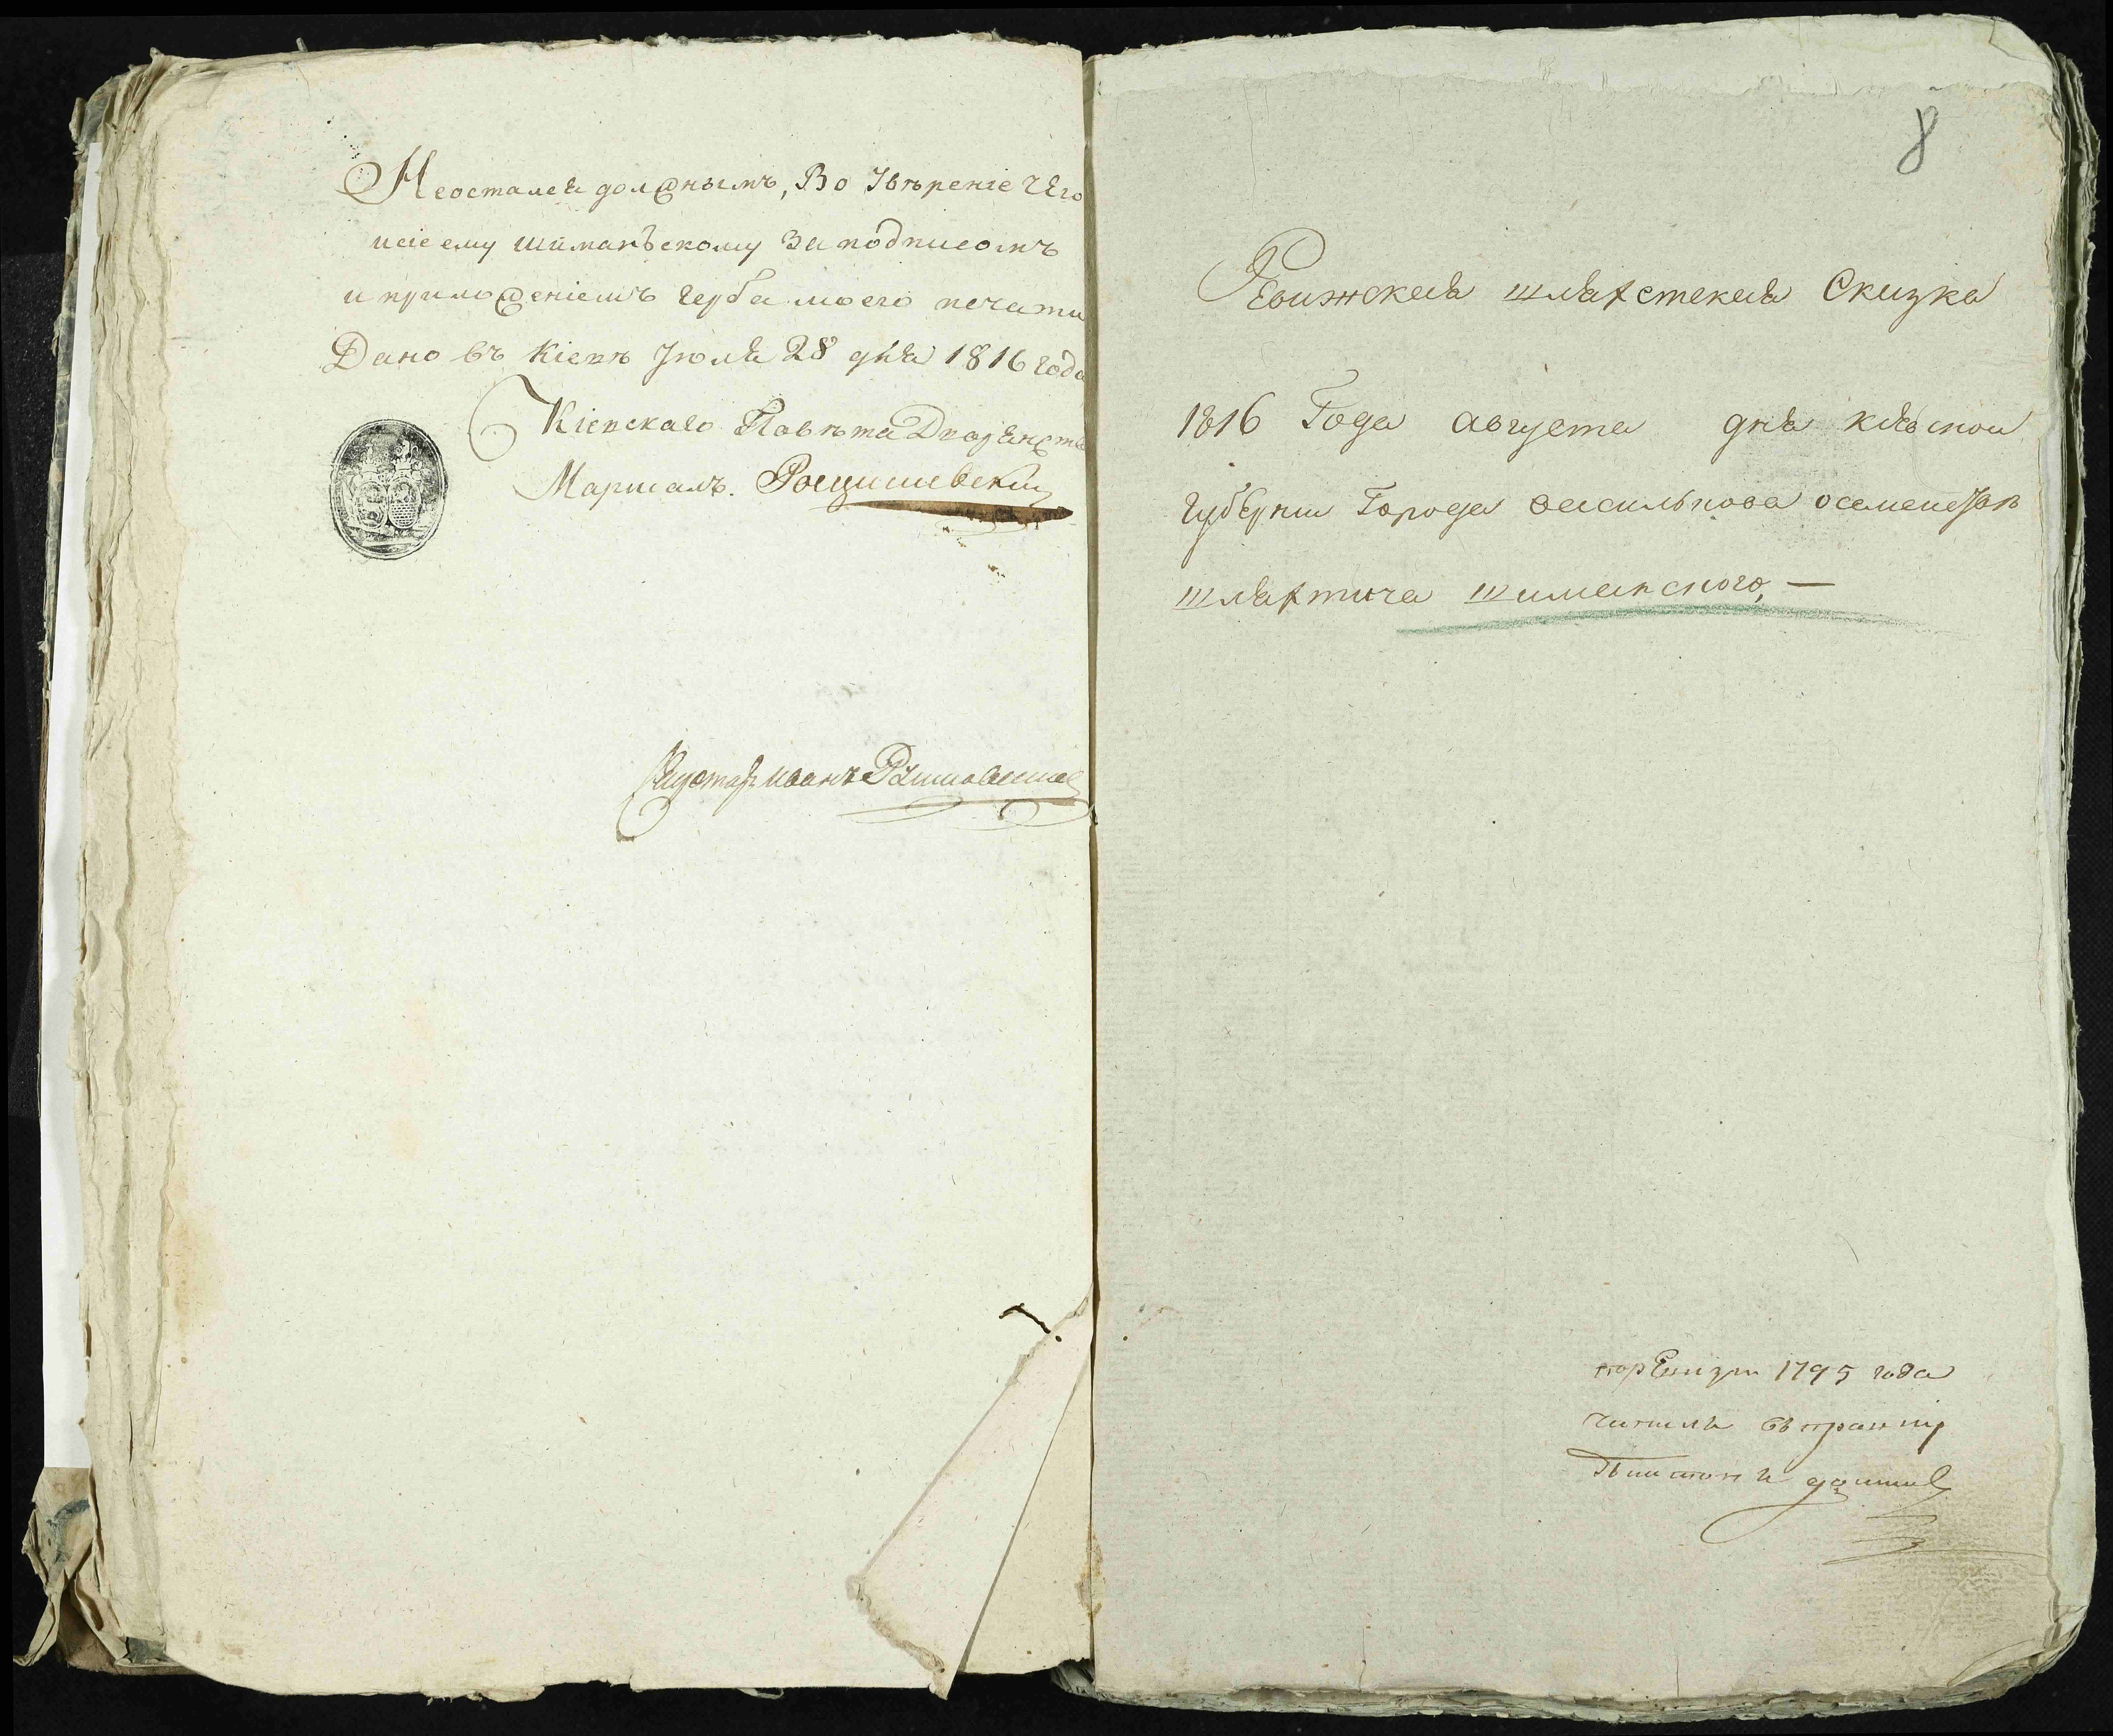 Неосталса должнымъ, Во Увѣренїе чего
исїе ему Шиманъскому За подписомъ
и приложенїемъ герба моего печати
Дано въ Кїевѣ Їюля 28 дня 1816 года
Кїевскаго Повѣта Дворянства
Маршалъ. Росцишевский
Регистраторъ Иванъ
8
Ревижская шляхетская Сказка
1816 Года августа дня кїевской
губернии Города василькова осеменстве
шляхтича шиманского, —
поревизии 1795 года